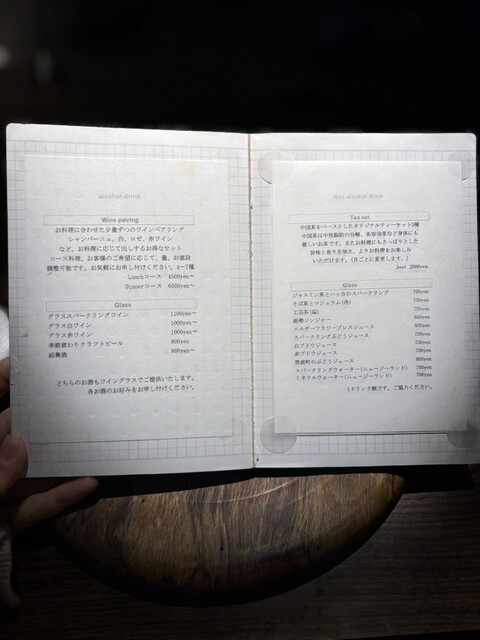 alcohol drink
Wine pairing
お料理に合わせた少量ずつのワインペアリング
シャンパーニュ、白、ロゼ、赤ワイン
など、お料理に応じて出しするお得なセット
コース料理、お客様のご希望に応じて、量、お値段
調整可能です。お気軽にお申し付けください。4~7種
Lunchコース 4500yen~
Dinnerコース 6000yen~
Glass
グラススパークリングワイン 1100yen~
グラス白ワイン 1000yen~
グラス赤ワイン 1000yen~
季節替わりクラフトビール 800yen~
紹興酒 800yen~
どちらのお酒もワイングラスでご提供いたします。
各お酒のお好みをお申し付けください。
Non alcohol drink
Tea set
中国茶をベースとしたオリジナルティーセット2種
中国茶は中性脂肪の分解、美容効果など身体にも
優しいお茶です。またお料理にもさっぱりとした
旨味と香りを加え、よりお料理をお楽しみ
いただけます。(月ごとに変更します。)
2set 2000yen
Glass
ジャスミン茶とハッカのスパークリング 700yen
そば茶とマジョラム(冷) 700yen
工芸茶(温) 700yen
能勢ジンジャー 600yen
エルダーフラワープレスジュース 800yen
スパークリングぶどうジュース 700yen
白ブドウジュース 700yen
赤ブドウジュース 700yen
のぶどうジュース 800yen
スパークリングウォーター(ニュージーランド) 700yen
ミネラルウォーター(ニュージーランド) 700yen
1ドリンク制です。ご協力ください。